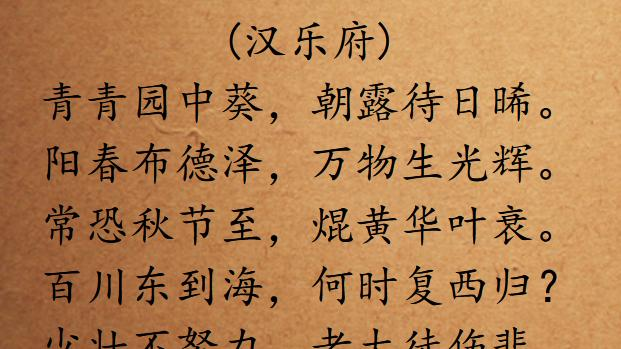 (汉乐府)
青青园中葵，朝露待日晞。
阳春布德泽，万物生光辉。
常恐秋节至，焜黄华叶衰。
百川东到海，何时复西归？
少壮不努力，老大徒伤悲